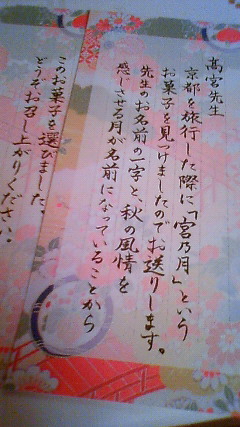 髙宮先生
京都を旅行した際に「宮乃月」という
お菓子を見つけましたのでお送りします。
先生のお名前の一字と、秋の風情を
感じさせる月が名前になっていることから
このお菓子を選びました。
どうぞお召し上がりください。